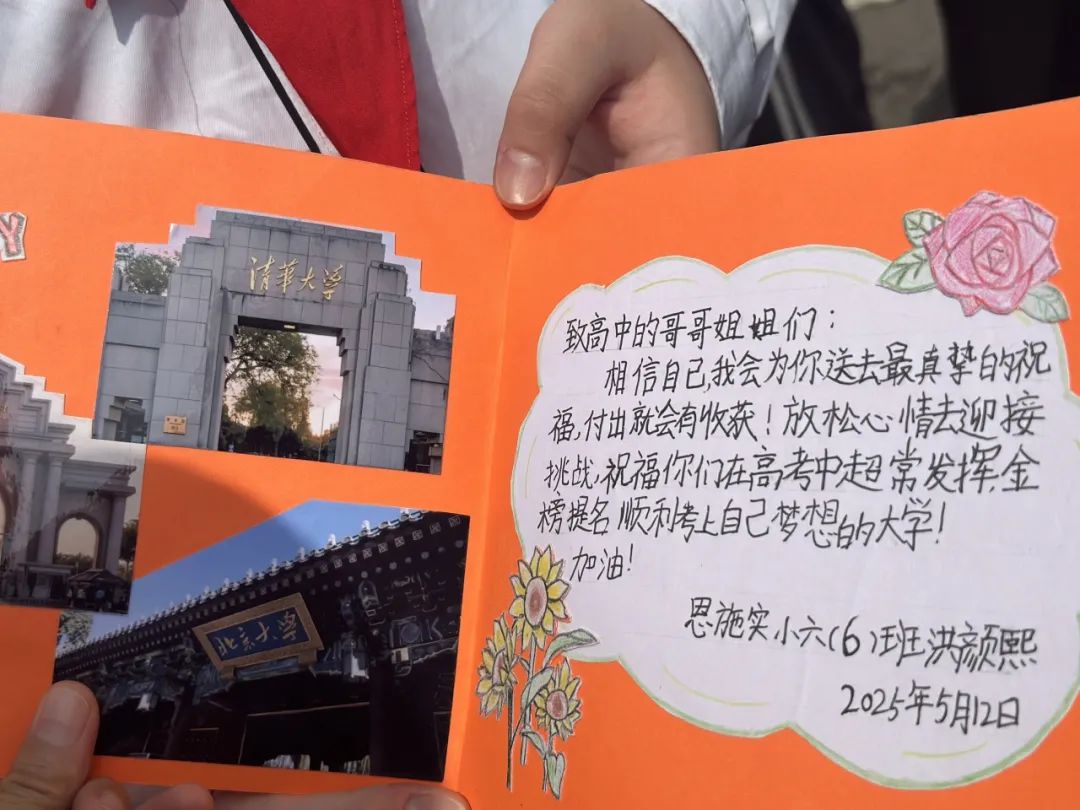 Y
清華大学
北京大学
致高中的哥哥姐姐们：
相信自己,我会为你送去最真挚的祝
福,付出就会有收获！放松心情去迎接
挑战,祝福你们在高考中超常发挥,金
榜提名 顺利考上自己梦想的大学！
加油！
恩施实小六(6)班洪颜熙
2025年5月12日